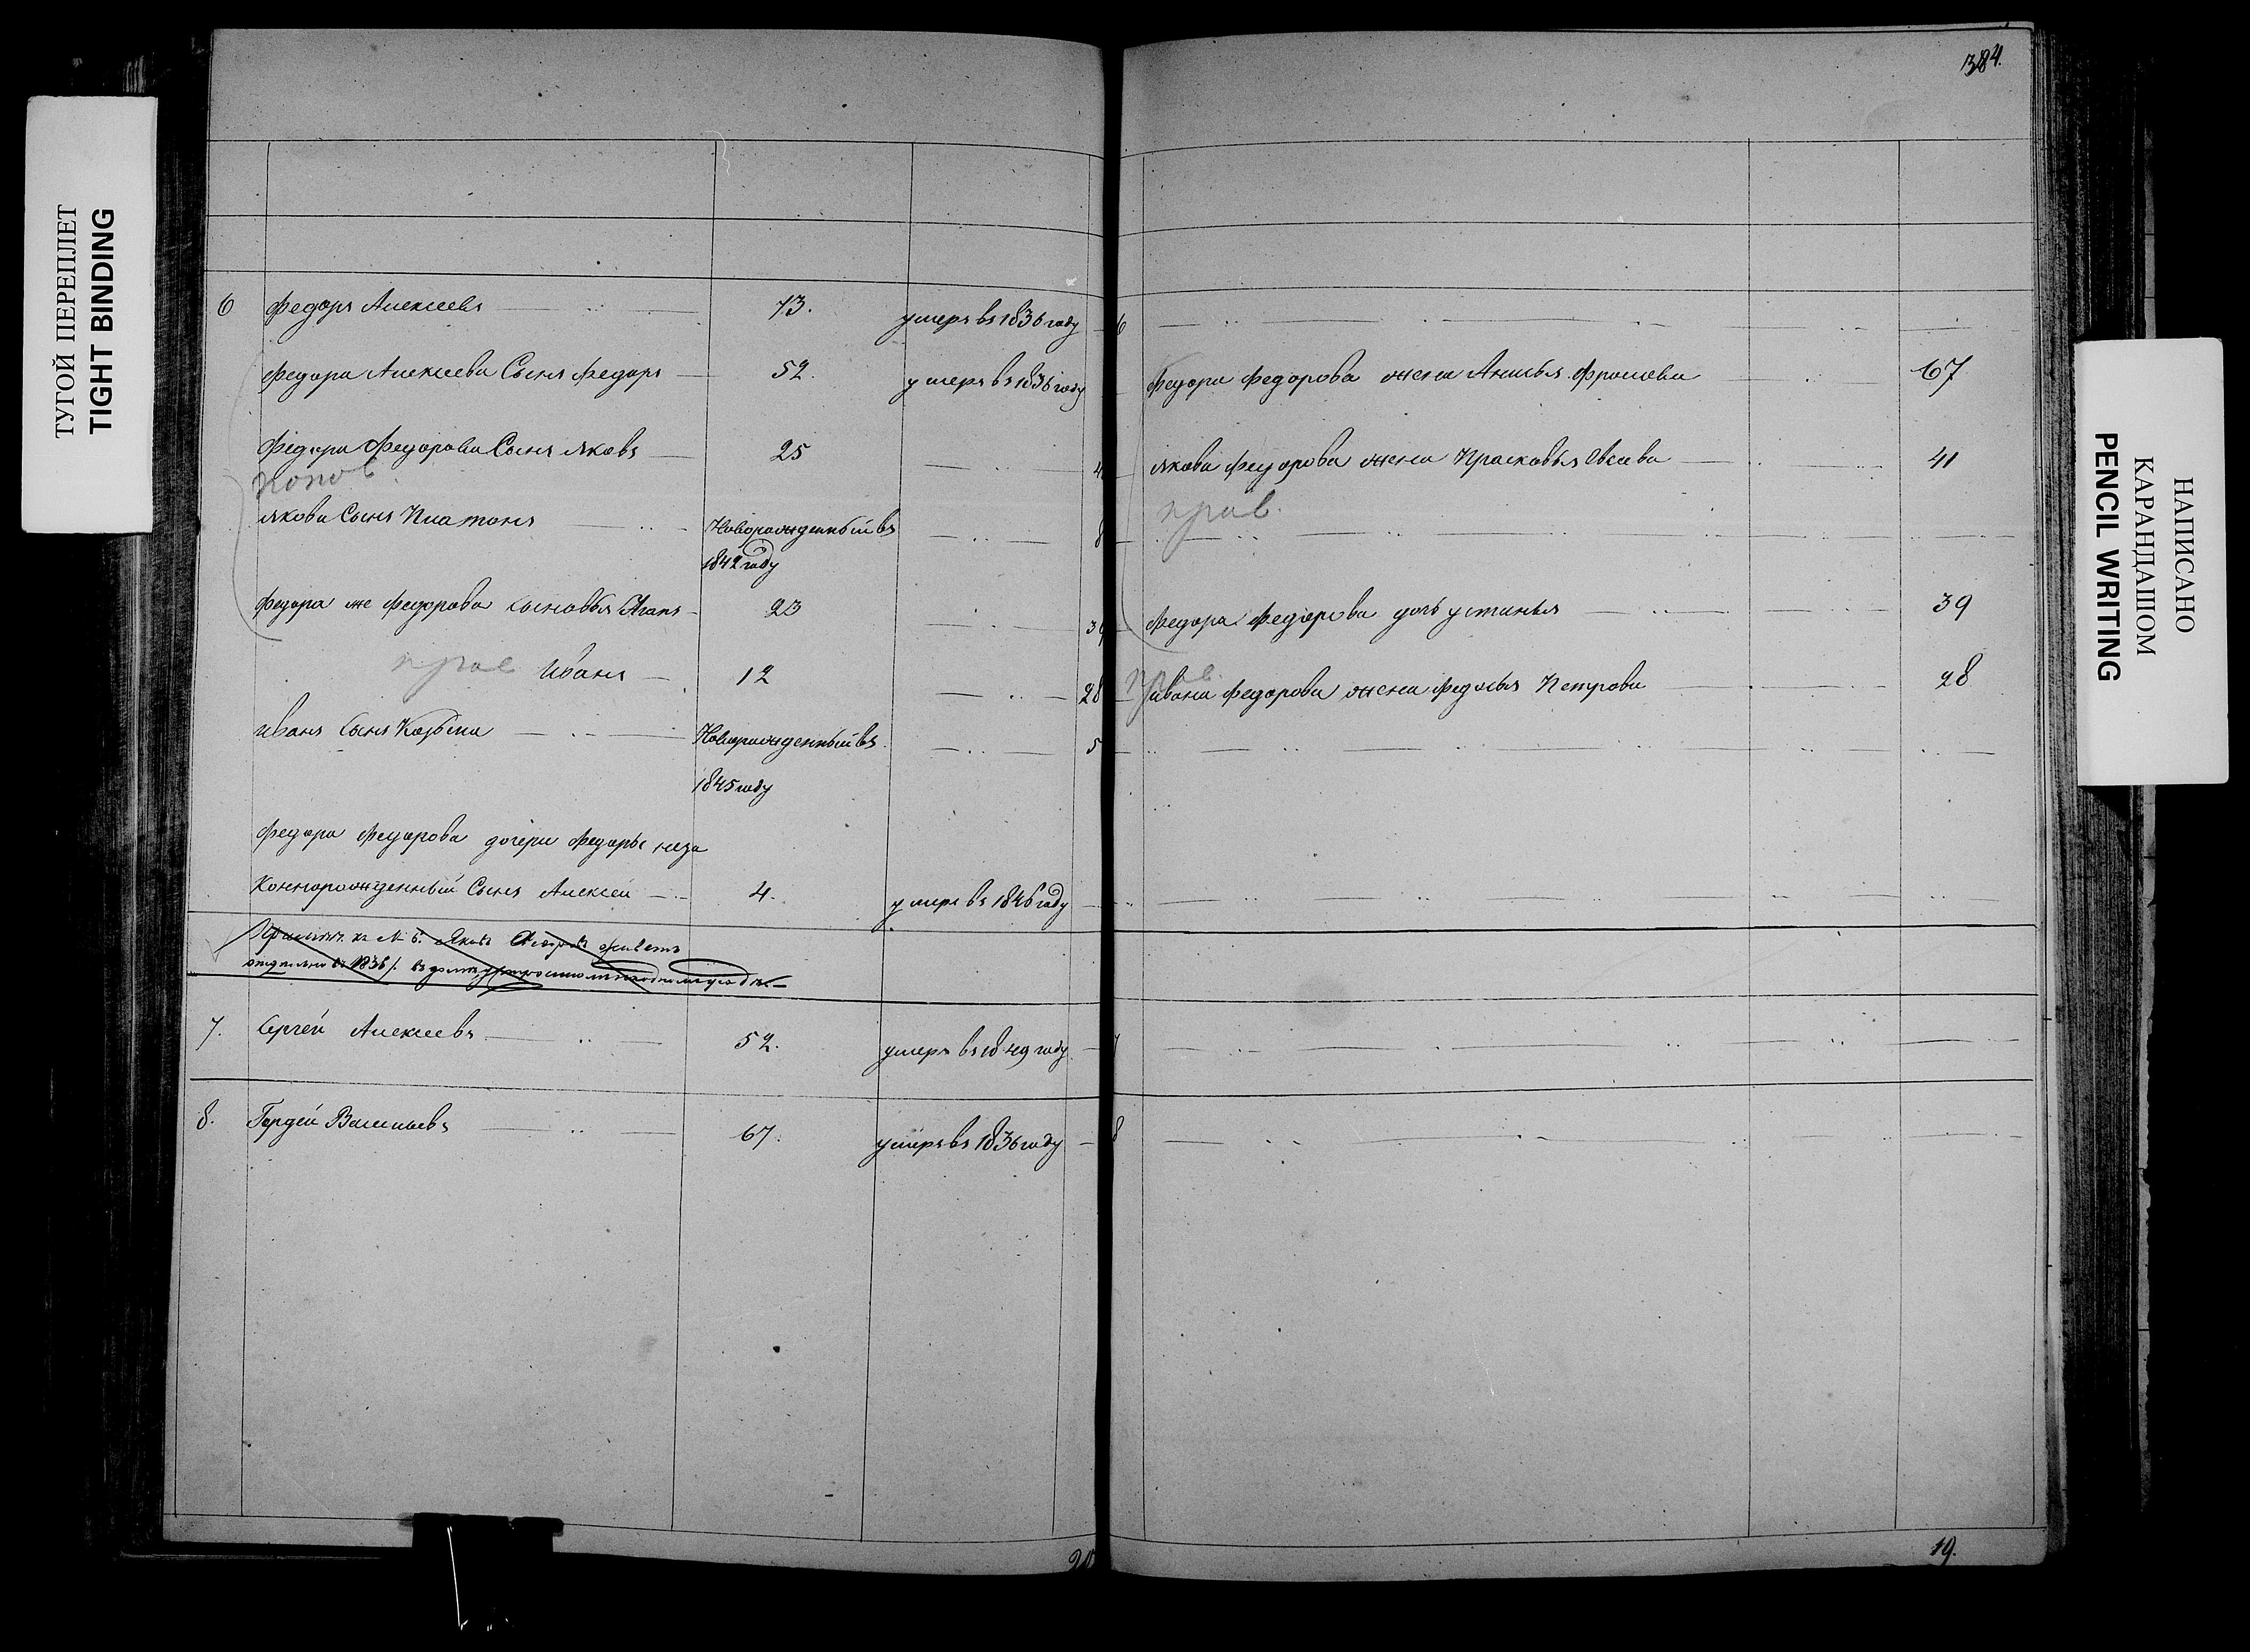 ТУГОЙ ПЕРЕПЛЕТ
TIGHT BINDING
384.
6 Федоръ Алексеевъ 73. умеръ въ 1836 году 6
Федора Алексеева Сынъ Федоръ 52. умеръ въ 1836 году
Федора Федорова жена Анисья Фролова 67
Федора Федорова Сынъ Яковъ 25 4
Якова Федорова жена Прасковья Овсеева 41
попов
прав.
Якова Сынъ Платонъ Новорожденный въ 8
1842 году
Федора же Федорова сыновья Агапъ 23 39
Федора Федорова дочь устинья 39
прав Иванъ 12 28
прав.
ивана Федорова жена Федосья Петрова 28
иванъ Сынъ Козьма Новорожденный въ 5
1845 году
Федора Федорова дочери Федоры неза
Коннорожденный Сынъ Алексей 4. умеръ въ 1846 году
къ № 6. Яковъ Федоровъ живетъ
отдельно въ 1836 г. въ
7. Сергей Алексеевъ 52. умеръ въ 1849 году 7
8. Гордей Васильевъ 67. умеръ въ 1836 году 8
19.
НАПИСАНО
КАРАНДАШОМ
PENCIL WRITING